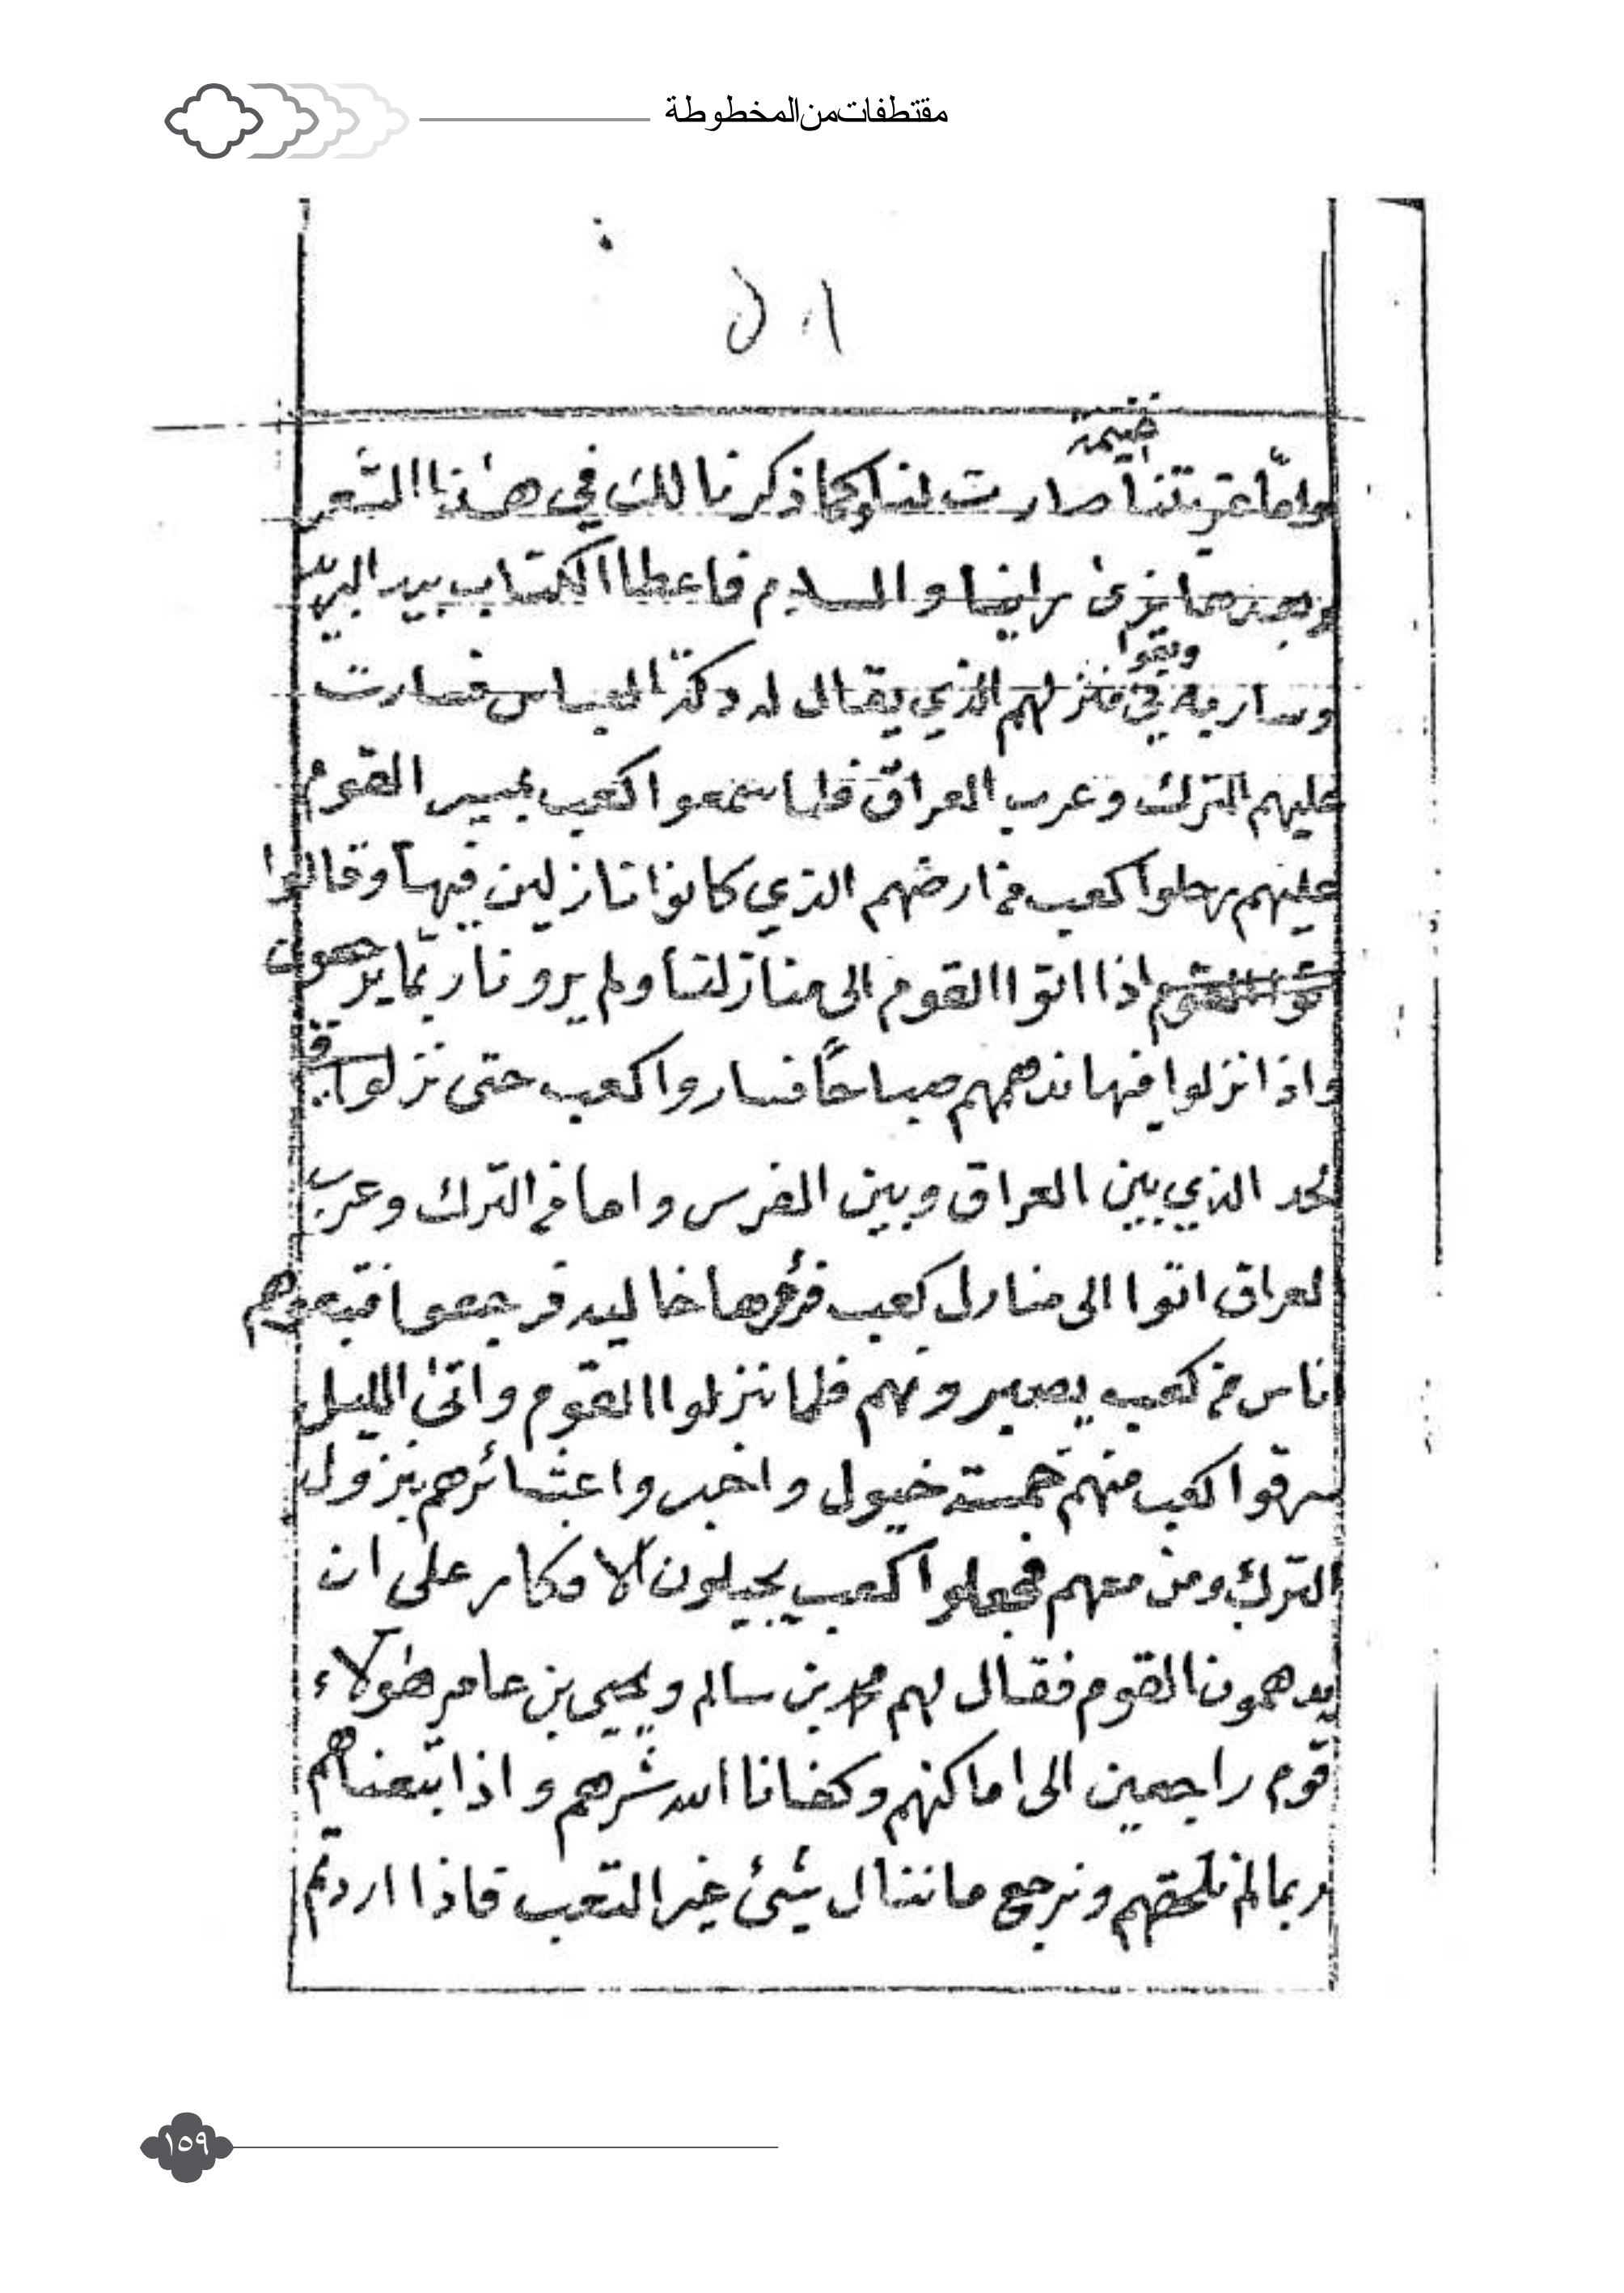 مقتطفات من المخطوطة
وامّا عزبتنا صارت لنا وكما ذكرنا لك في هذا الشعر
غنيمة
والسلام فاعطا الكتاب بيد البريد
وبقوا
وسار به في منزلهم الذي يقال له دكة العباس فسارت
عليهم الترك وعرب العراق فلما سمعوا كعب بمسير القوم
عليهم رحلوا كعب من ارضهم الذي كانوا نازلين فيها وقالوا
اذا اتوا القوم الى منازلنا ولم يرونا ربما يرجعون
واذا نزلوا فيها ندهمهم صباحًا فساروا كعب حتى نزلوا
الحد الذي بين العراق وبين الفرس واما من الترك وعرب
العراق اتوا الى منازل كعب فرؤها خاليه فرجعوا فتبعوهم
اناس من كعب يصيرونهم فلما نزلوا القوم واتى الليل
سرقوا كعب منهم خمسة خيول واخبروا عشائرهم بنزول
الترك ومن معهم فجعلوا كعب يجيلون الافكار على ان
يدهمون القوم فقال لهم محمد بن سالم ويحيى بن عامر هؤلاء
قوم راجعين الى اماكنهم وكفانا الله شرهم واذا تبعناهم
ربما لم نلحقهم ونرجع ما ننال شيئ غير التعب فاذا اردتم
١٥٩